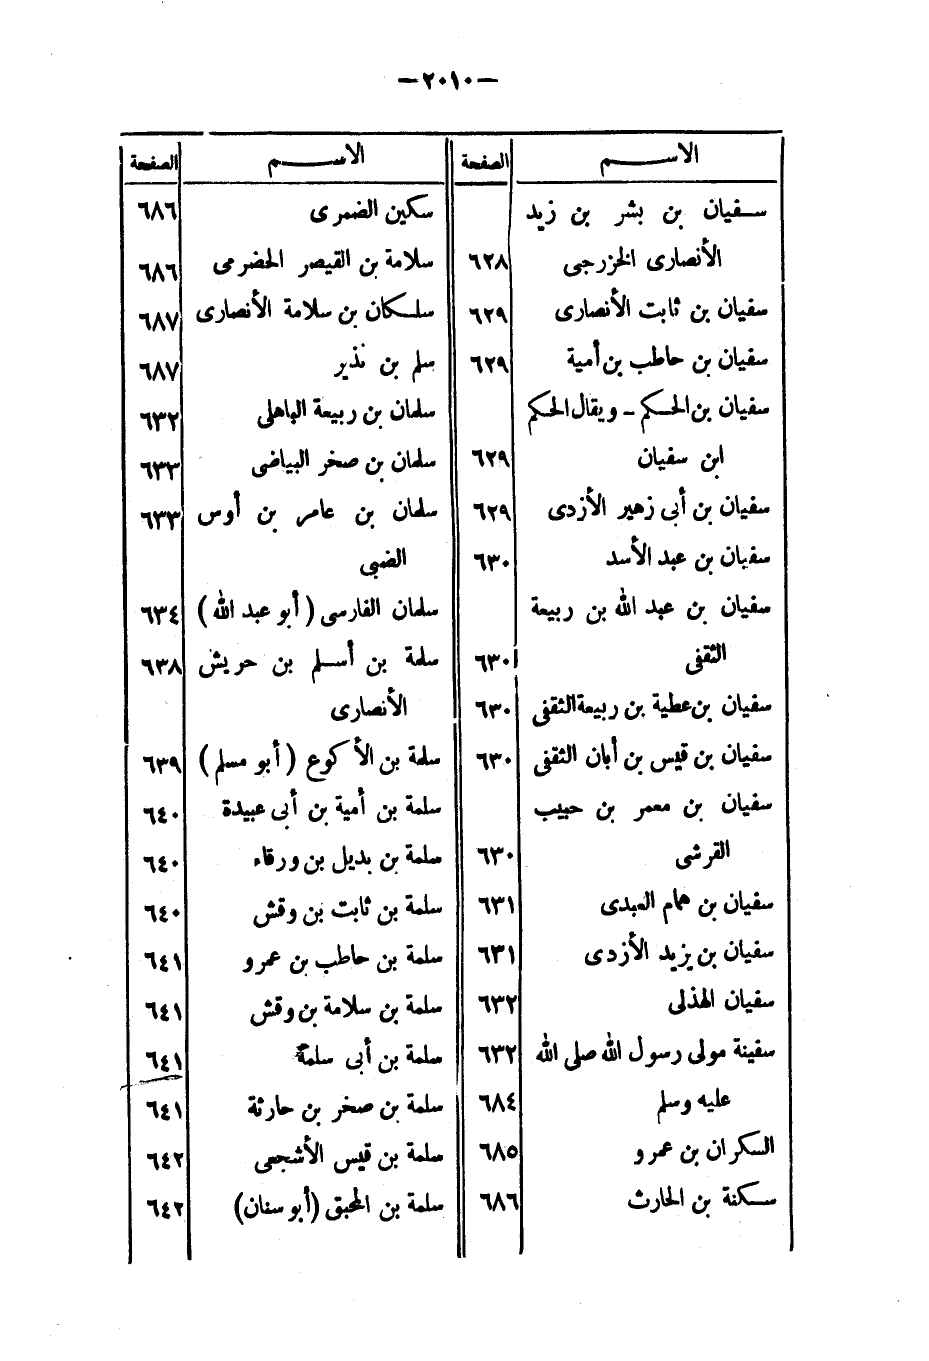 —٢٠١٠—
الاســـم الصفحة
سفيان بن بشر بن زيد
الأنصارى الخزرجى ٦٢٨
سفيان بن ثابت الأنصارى ٦٢٩
سفيان بن حاطب بن أمية ٦٢٩
سفيان بن الحكم – ويقال الحكم
ابن سفيان ٦٢٩
سفيان بن أبى زهير الأزدى ٦٢٩
سفيان بن عبد الأسد ٦٣٠
سفيان بن عبد الله بن ربيعة
الثقفى ٦٣٠
سفيان بن عطية بن ربيعة الثقفى ٦٣٠
سفيان بن قيس بن أبان الثقفى ٦٣٠
سفيان بن معمر بن حبيب
القرشى ٦٣٠
سفيان بن همام العبدى ٦٣١
سفيان بن يزيد الأزدى ٦٣١
سفيان الهذلى ٦٣٢
سفينة مولى رسول الله صلى الله ٦٣٢
عليه وسلم ٦٨٤
السكران بن عمرو ٦٨٥
سكنة بن الحارث ٦٨٦
الاســـم الصفحة
سكين الضمرى ٦٨٦
سلامة بن القيصر الحضرمى ٦٨٦
سلكان بن سلامة الأنصارى ٦٨٧
سلم بن نذير ٦٨٧
سلمان بن ربيعة الباهلى ٦٣٢
سلمان بن صخر البياضى ٦٣٣
سلمان بن عامر بن أوس ٦٣٣
الضبى
سلمان الفارسى (أبو عبد الله) ٦٣٤
سلمة بن أسلم بن حريش ٦٣٨
الأنصارى
سلمة بن الأكوع (أبو مسلم) ٦٣٩
سلمة بن أمية بن أبى عبيدة ٦٤٠
سلمة بن بديل بن ورقاء ٦٤٠
سلمة بن ثابت بن وقش ٦٤٠
سلمة بن حاطب بن عمرو ٦٤١
سلمة بن سلامة بن وقش ٦٤١
سلمة بن أبى سلمة ٦٤١
سلمة بن صخر بن حارثة ٦٤١
سلمة بن قيس الأشجعى ٦٤٢
سلمة بن المحبق (أبو سنان) ٦٤٢